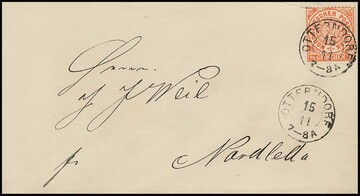 OTTERNDORF
15
11
7-8A
OTTERNDORF
15
11
7-8A
Herrn
J J Weil
Nordleda